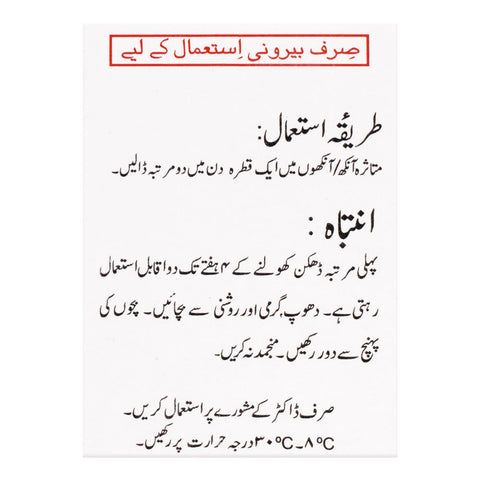 صِرف بیرونی اِستعمال کے لیے
طریقہ استعمال:
متاثرہ آنکھ/آنکھوں میں ایک قطرہ دن میں دو مرتبہ ڈالیں۔
انتباہ :
پہلی مرتبہ ڈھکن کھولنے کے ۴ ہفتے تک دوا قابل استعمال
رہتی ہے۔ دھوپ، گرمی اور روشنی سے بچائیں۔ بچوں کی
پہنچ سے دور رکھیں۔ منجمد نہ کریں۔
صرف ڈاکٹر کے مشورے پر استعمال کریں۔
۸°C۔۳۰°C درجہ حرارت پر رکھیں۔